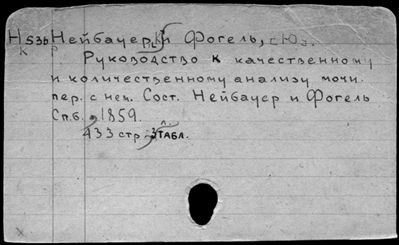 Н 53б Нейбауер, К и Фогель, Ю.
К
Руководство к качественному
и количественному анализу мочи.
пер. с нем. Сост. Нейбауер и Фогель
Спб. 1859.
433 стр. 3 табл.